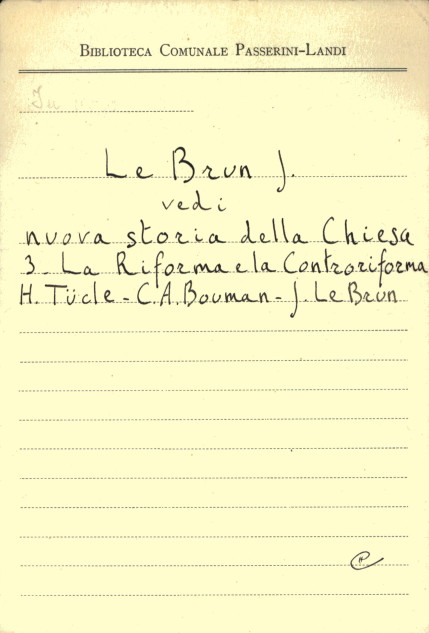 BIBLIOTECA COMUNALE PASSERINI-LANDI
Le Brun J.
vedi
nuova storia della Chiesa
3 - La Riforma e la Controriforma
H. Tücle - C.A. Bouman - J. Le Brun